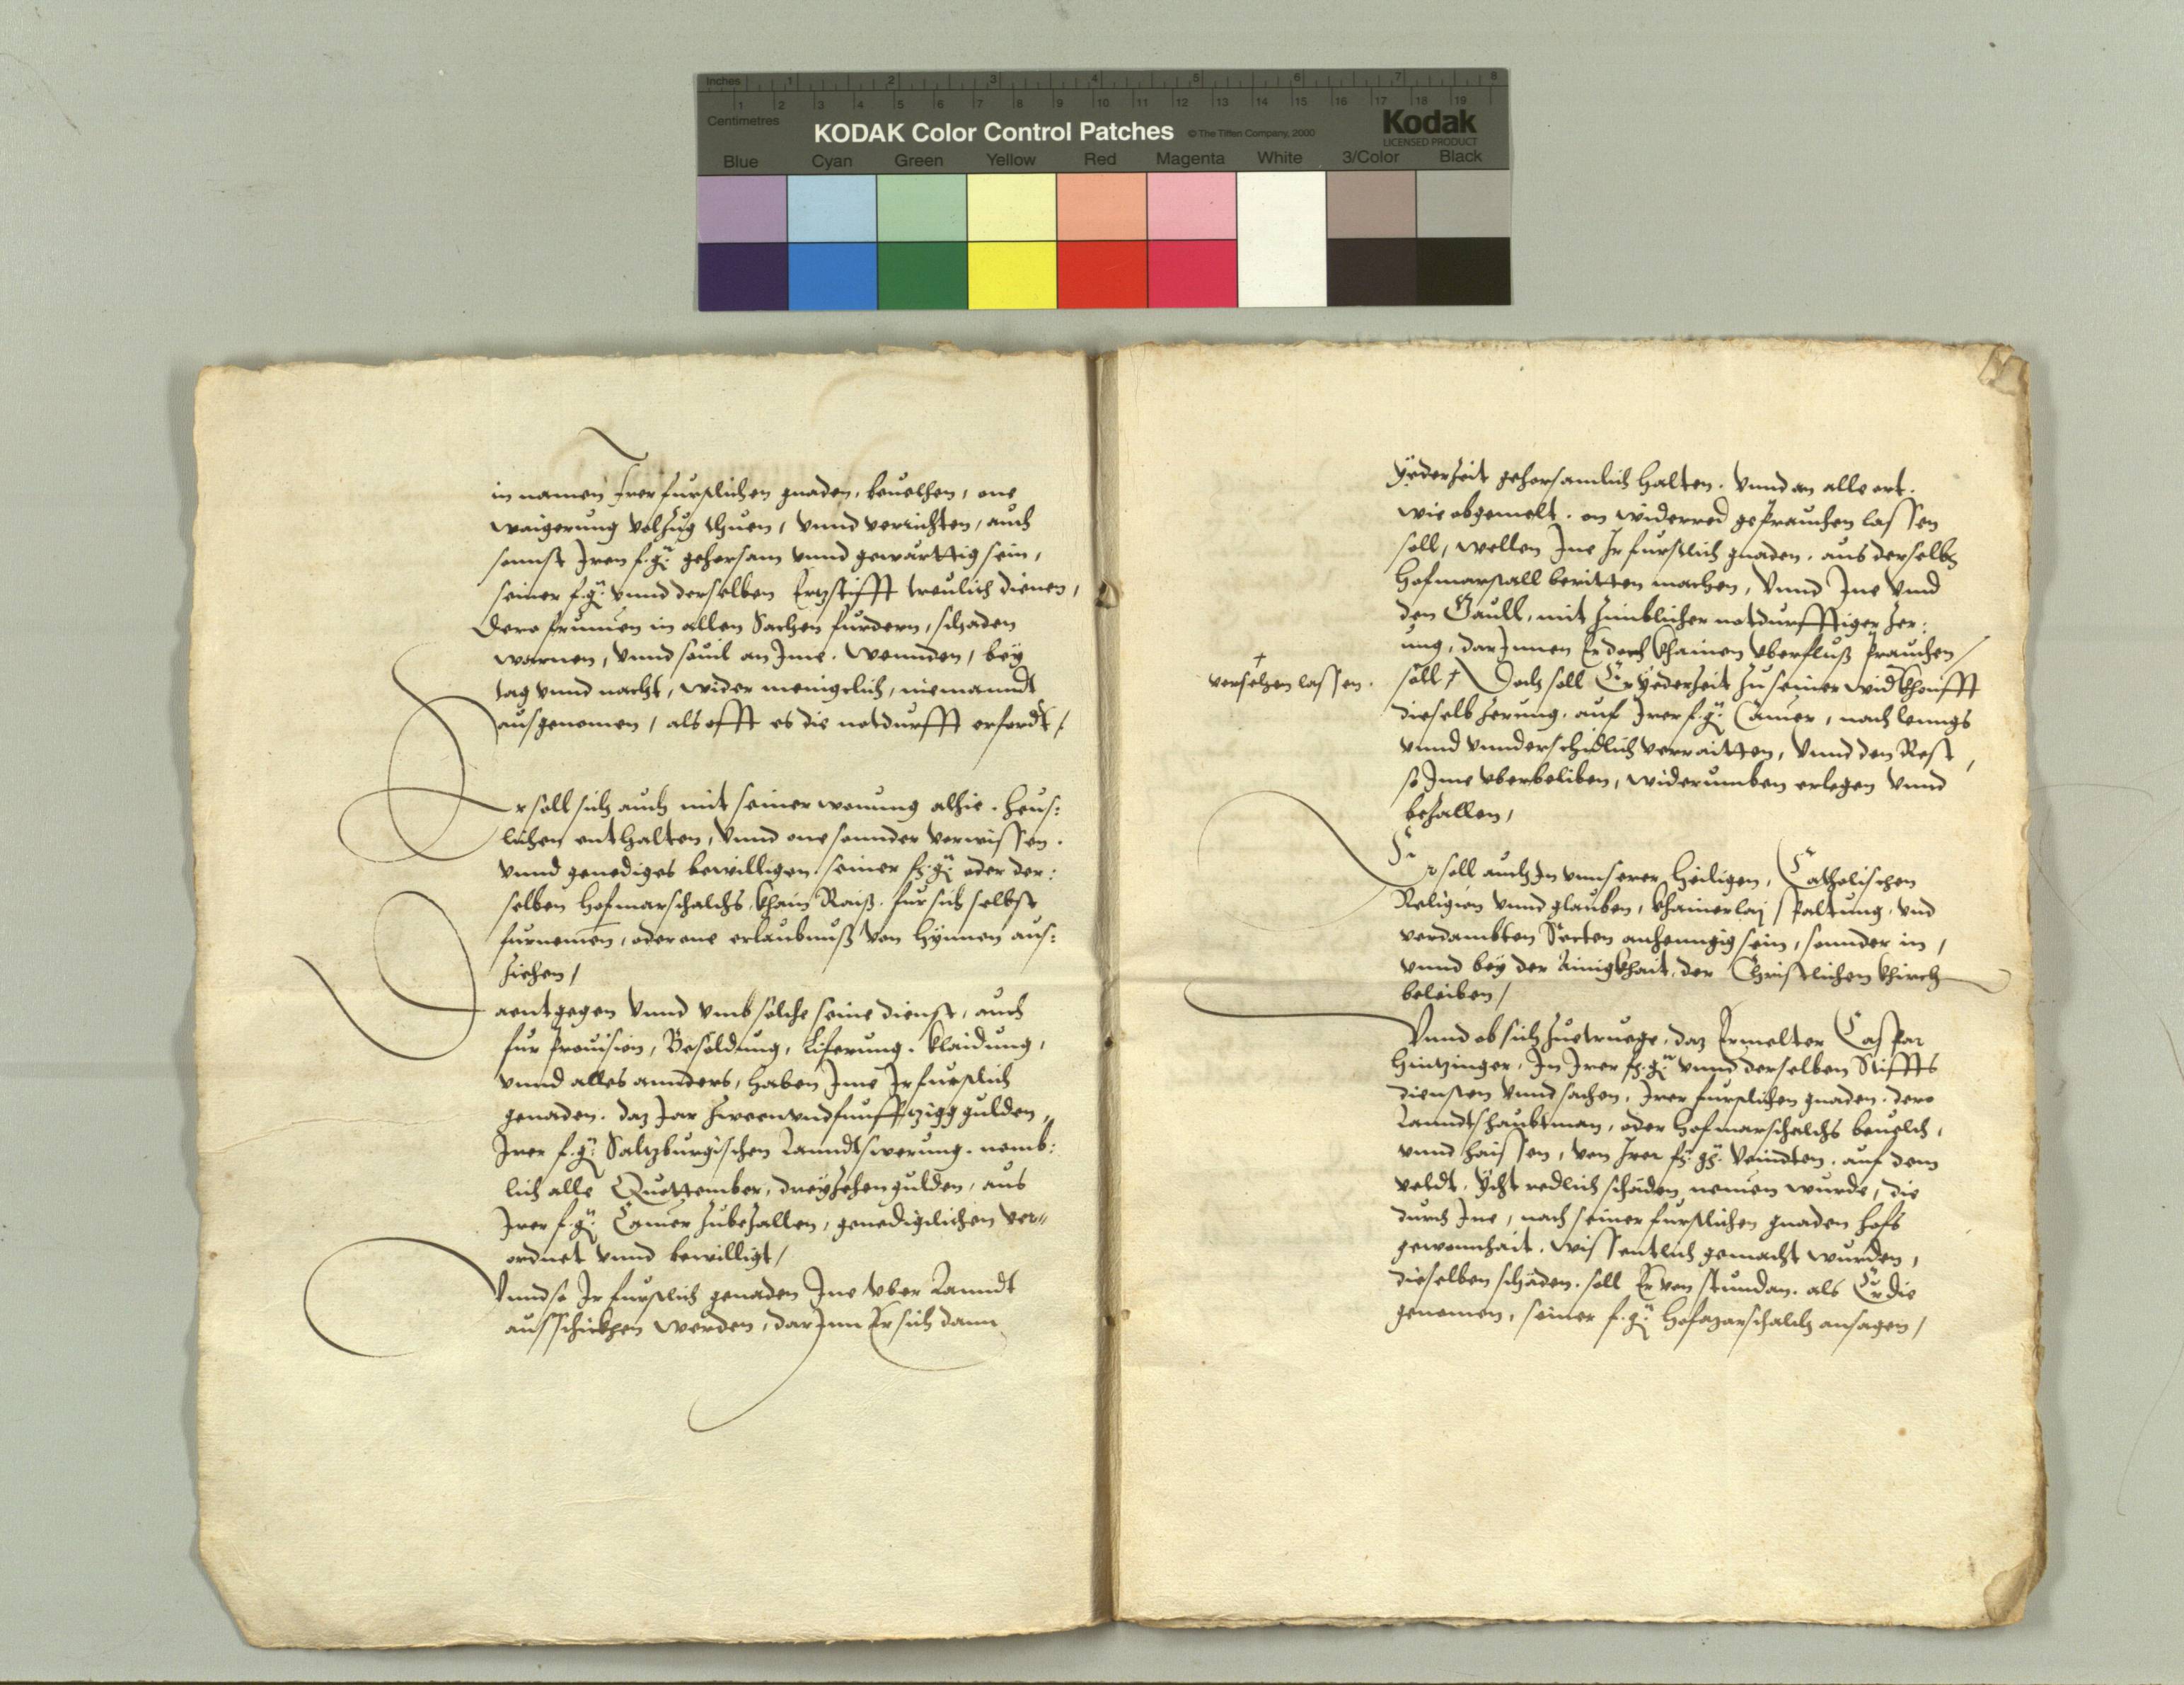 Inches 1 2 3 4 5 6 7 8
Centimetres 1 2 3 4 5 6 7 8 9 10 11 12 13 14 15 16 17 18 19
KODAK Color Control Patches © The Tiffen Company, 2000 Kodak
LICENSED PRODUCT
Blue Cyan Green Yellow Red Magenta White 3/Color Black
in namen Irer furstlichen gnaden, beuelhen, one
waigerung volzug thuen, vnnd verrichten, auch
sonnst Iren f. g. gehorsam vnnd gewarttig sein,
seiner f. g. vnnd derselben Ertzstifft treulich dienen,
Dero frumen in allen Sachen furdern, schaden
warnen, vnnd souil an Ime. wennden, bey
tag vnnd nacht, wider menigclich, niemanndt
ausgenomen, als offt es die notdurfft erfordt /
Er soll sich auch mit seiner wonung alhie. heus:
lichen enthalten, vnnd one sonnder vorwissen.
vnnd genediges bewilligen. seiner fr. g. oder der:
selben Hofmarschalchs, khain Raiß. fur sich selbst
furnemen, oder one erlaubnuß von hynnen aus:
ziehen /
Daentgegen vnnd vmb solche seine dienst, auch
fur Prouision, Besoldung, Liferung. Klaidung,
vnnd alles annders, haben Ime Ir furstlich
genaden. daz Jar zweenvndfunfftzigg gulden,
Irer f. g. Saltzburgischen Lanndtswerung. nemb:
lich alle Quottember, dreyzehen gulden, aus
Irer f. g. Camer zubezallen, genedigclichen ver„
ordnet vnnd bewilligt /
Vnnd so Ir furstlich genaden Ine vber Lanndt
ausschickhen werden, darInn Er sich dann
Yederzeit gehorsamlich halten. Vnnd an alle ort.
wie obgemelt. on widerred geprauchen lassen
soll, wellen Ine Ir furstlich gnaden. aus derselb
Hofmarstall beritten machen, Vnnd Ine vnnd
den Gaull, mit zimblicher notdurfftiger zer:
ung, darInnen Er doch khainen vberfluß prauchen /
† versehen lassen.
soll † Doch soll Er yederzeit zu seiner widkhonfft
dieselb zerung. auf Irer f. g. Camer, nach lenngs
vnnd vnnderschidlich verraitten, Vnnd den Rest,
so Ime vberbeliben, widerumben erlegen vnnd
bezallen,
Er soll auch In vnnserer Heiligen, Catholischen
Religion vnnd glauben, khainerlaj spaltung. vnd
verdambten Secten anhenngig sein, sonnder in,
vnnd bey der Ainigkhait, der Christlichen Khirch
beleiben /
Vnnd ob sich zuetruege, daz Ermelter Caspar
Hintzinger, In Irer fr. g. vnnd derselben Stiffts
diensten vnnd sachen. Irer furstlichen gnaden. dero
Lanndtshaubtman, oder Hofmarschalchs beuelch,
vnnd haissen, von Irer fr. g. Veindten. auf dem
veldt. Ycht redlich schaden nemen wurde, die
durch Ine, nach seiner furstlichen gnaden hofs
gewonnhait. wissentlich gemacht wurden,
dieselben schäden. soll Er von stundan. als Er die
genomen, seiner f. g. Hofmarschalch ansagen /